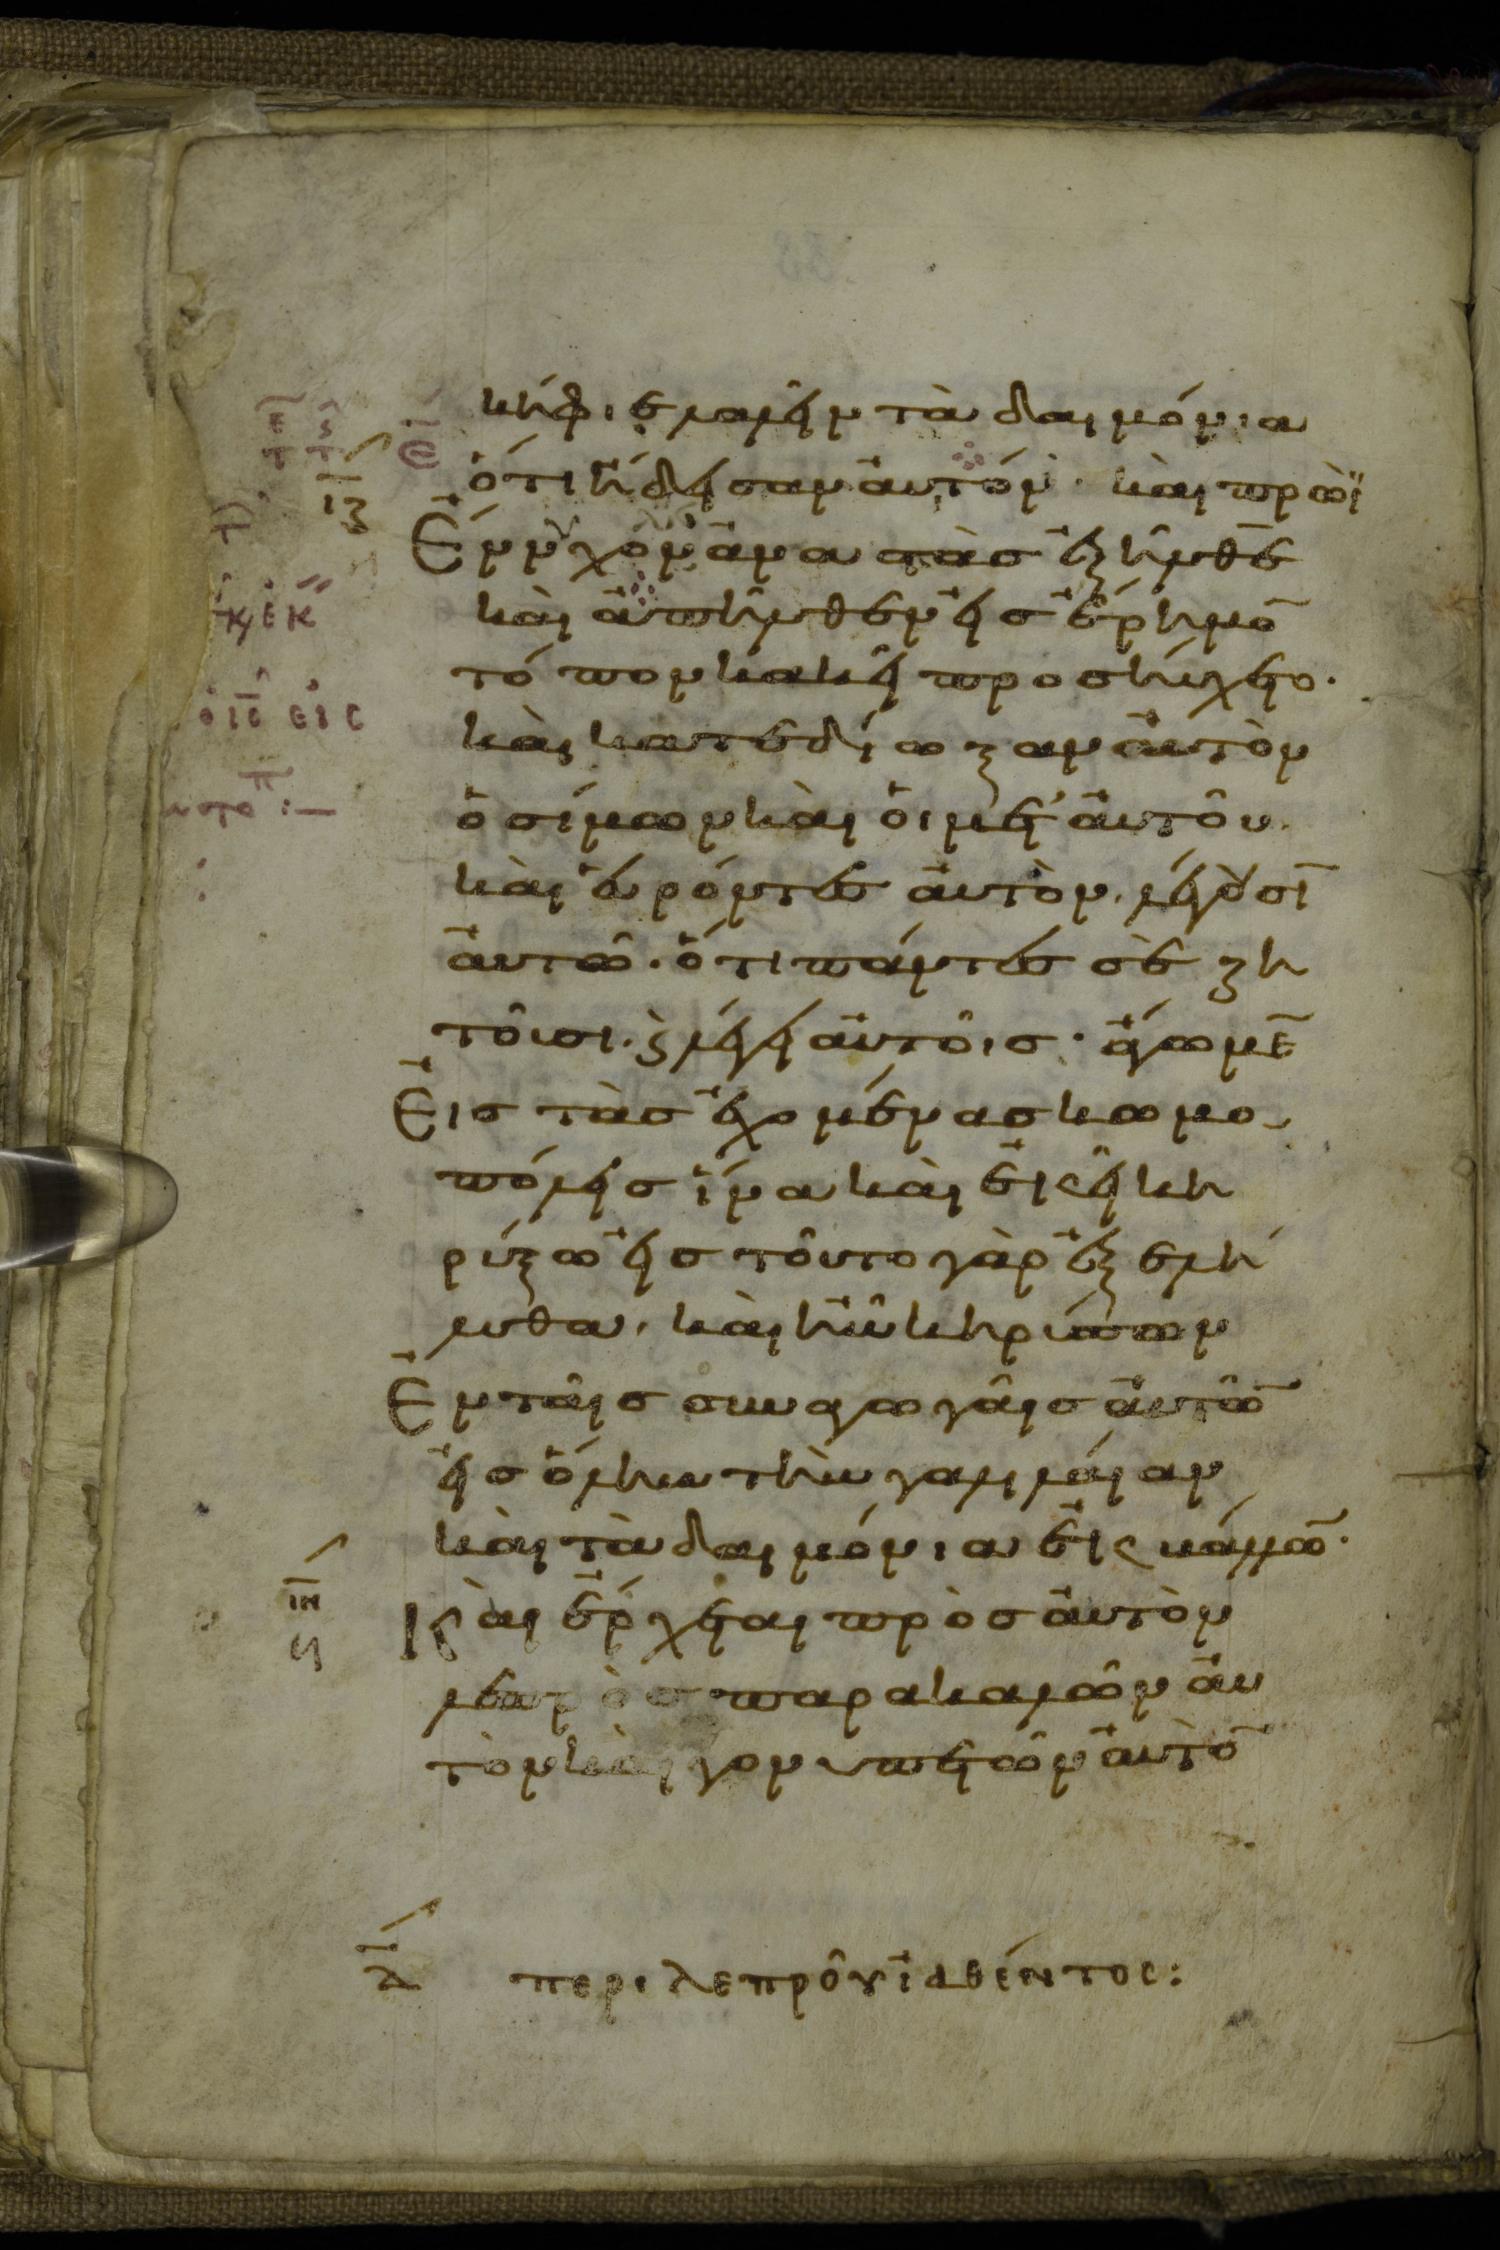 κήφιε λαλεῖν τὰ δαιμόνια
ὅτι ἤδεισαν αὐτόν· καὶ πρωῒ
Ἔννυχον ἀναστὰς ἐξῆλθε
καὶ ἀπῆλθεν εἰς ἔρημο̄
τόπον κακεῖ προσηύχετο·
καὶ κατεδίωξαν αὐτὸν
ὁ σίμων καὶ οἱ μετ' αὐτοῦ.
καὶ εὑρόντες αὐτὸν. λέγουσῑ
αὐτῶ· ὅτι πάντες σὲ ζη
τοῦσι. ϗ λέγει αὐτοῖς· ἄγωμε̄
Εἰς τὰς ἐχομένας κωμο
πόλεις ἵνα καὶ ἐκεῖ κη
ρύξω εἰς τοῦτο γὰρ ἐξελή
λυθα, καὶ ἦν κηρύσσων
Ἐν ταῖς συναγωγαῖς αὐτῶ̄
εἰς ὅλην τὴν γαλιλαίαν
καὶ τὰ δαιμόνια ἐκβάλλω̄·
ιη Καὶ ἔρχεται πρὸς αὐτὸν
λεπρὸς παρακαλῶν αὐ
τὸν καὶ γονυπετῶν αὐτὸ̄
Δ περι λεπροῦ ἰαθέντος: